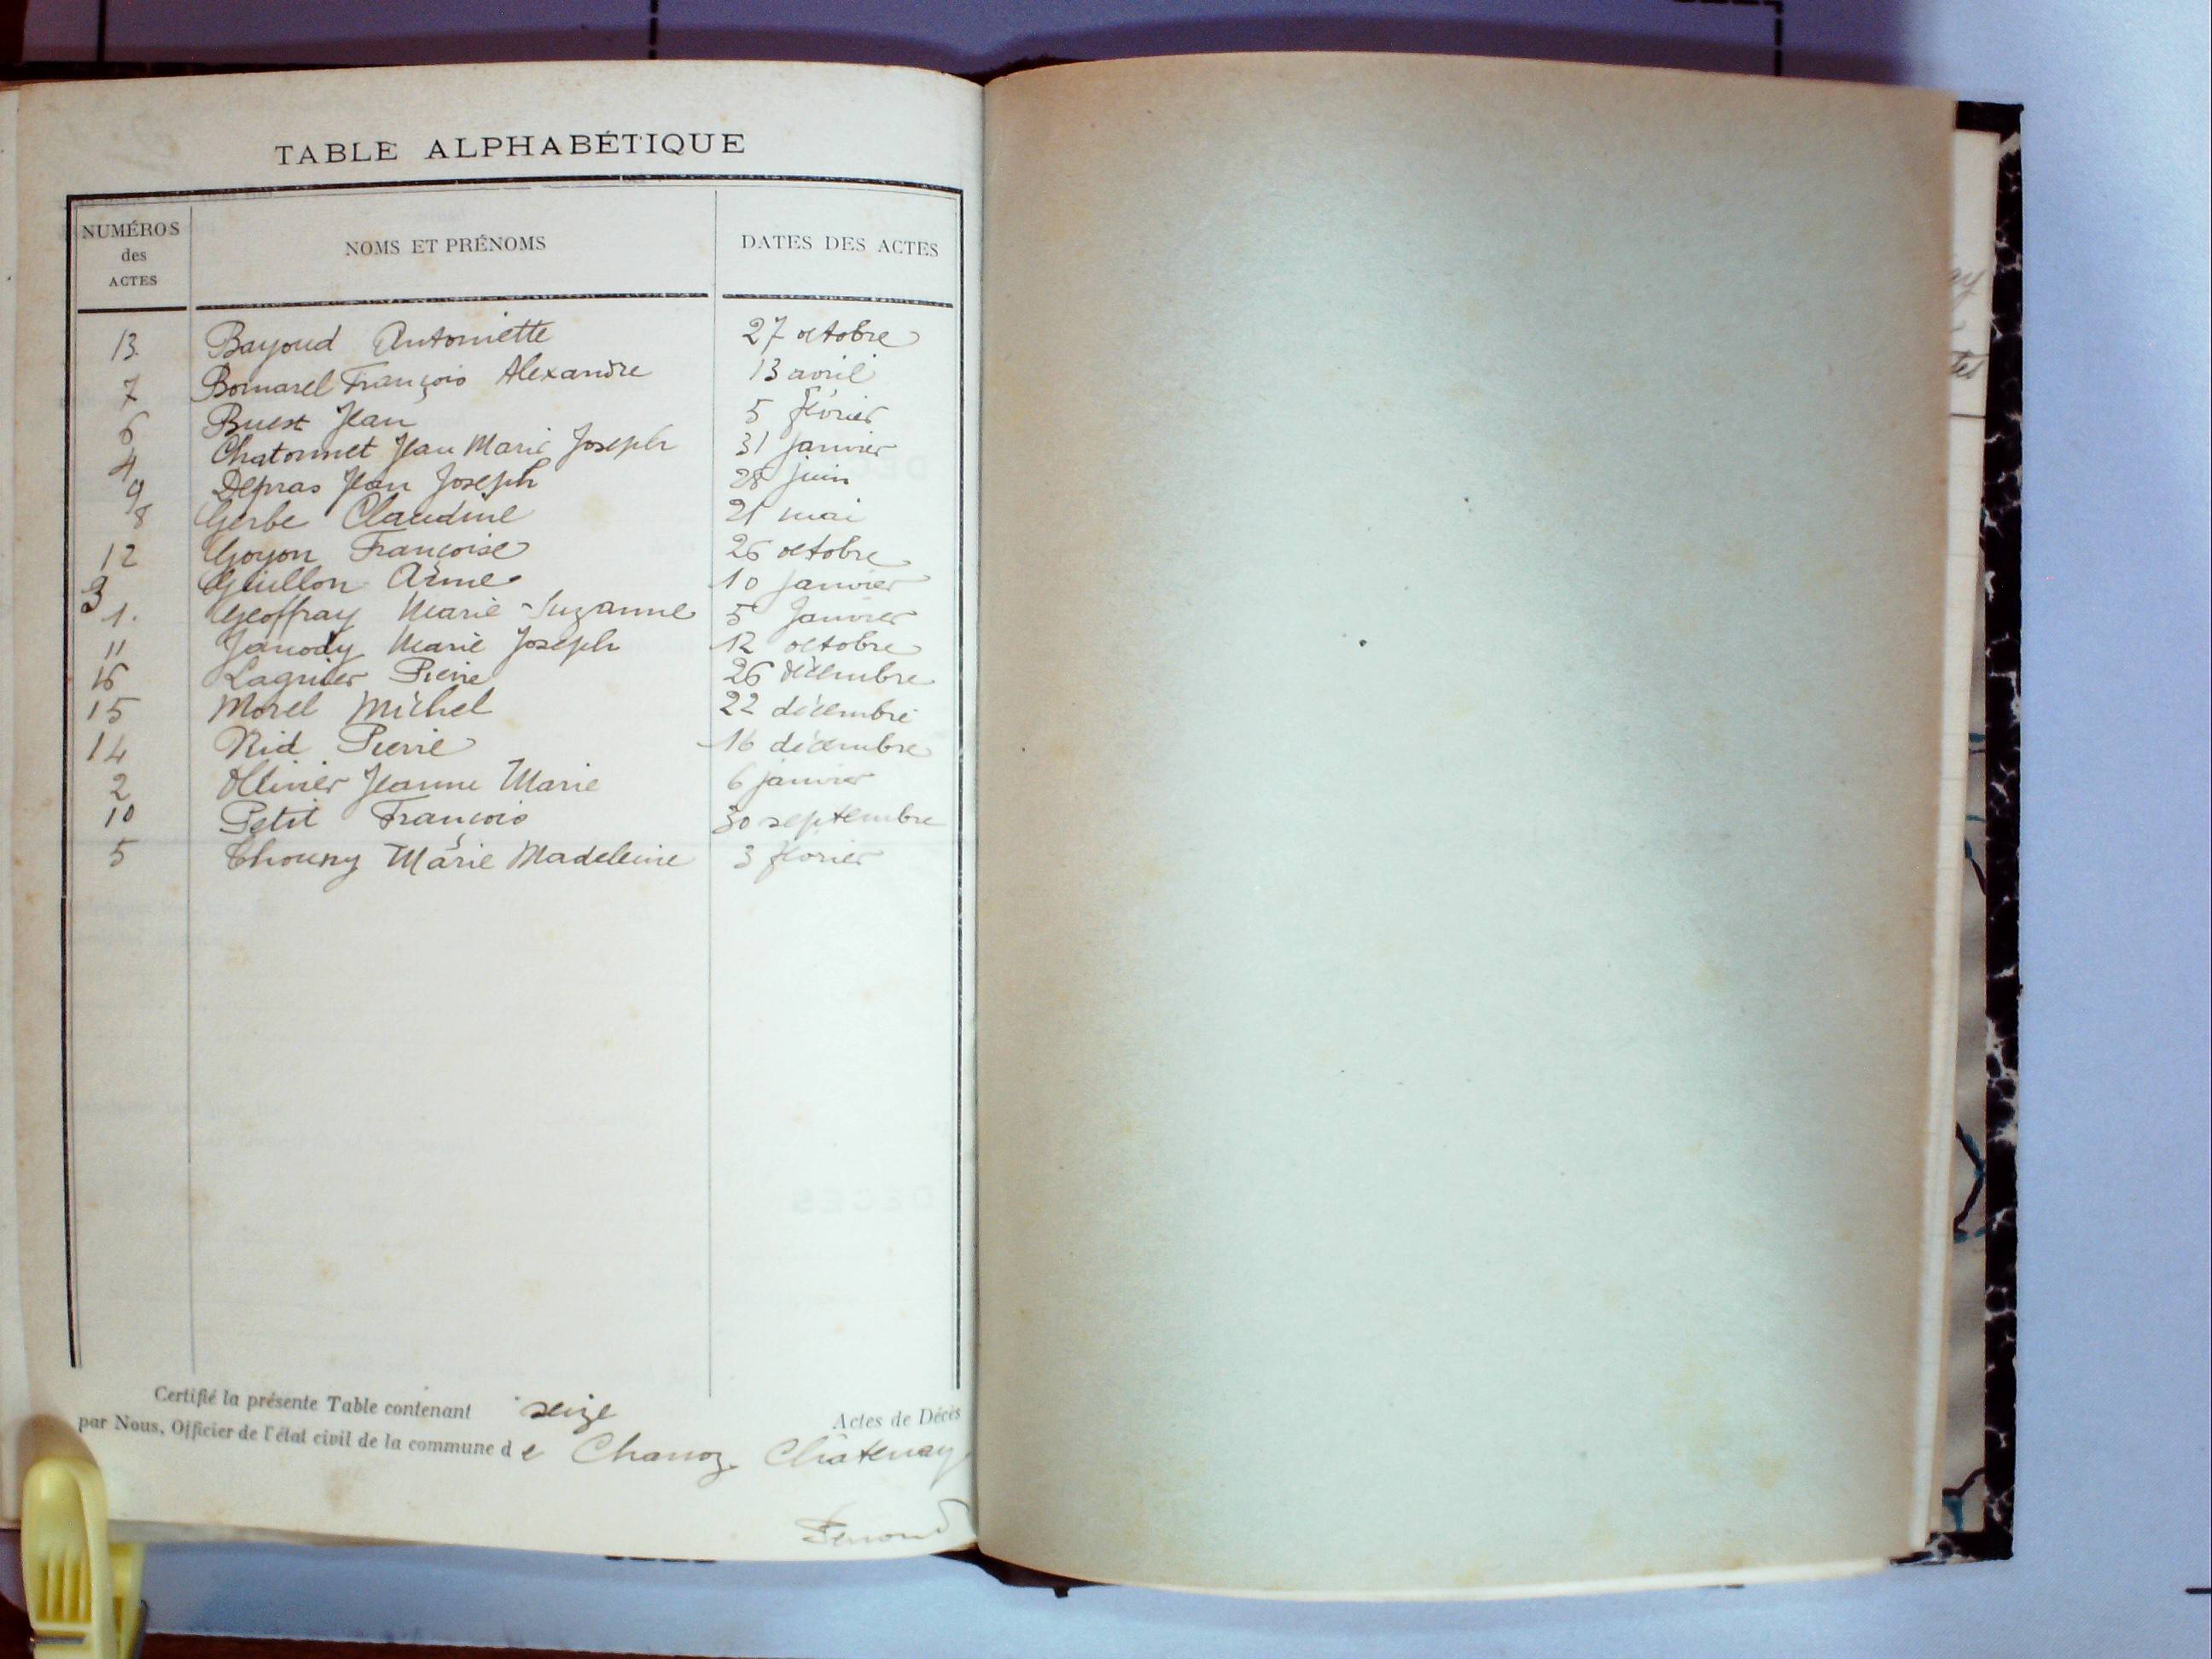 TABLE ALPHABÉTIQUE
NUMÉROS des ACTES NOMS ET PRÉNOMS DATES DES ACTES
13. Bayoud Antoinette 27 octobre
7 Bornarel François Alexandre 13 avril
6 Buest Jean 5 février
4 Chatonnet Jean Marie Joseph 31 janvier
9 Depras Jean Joseph 28 juin
8 Gerbe Claudine 21 mai
12 Goyon Françoise 26 octobre
3 Guillon Aimé 10 janvier
1. Geoffray Marie-Suzanne 5 janvier
11 Janody Marie Joseph 12 octobre
16 Lagnier Pierre 26 décembre
15 Morel Michel 22 décembre
14 Nid Pierre 16 décembre
2 Ollivier Jeanne Marie 6 janvier
10 Petit François 30 septembre
5 Marie Madeleine 3 février
Certifié la présente Table contenant seize Actes de Décès
par Nous, Officier de l'état civil de la commune de Chanoz Châtenay